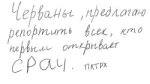 Черваны, предлагаю
репортить всех, кто
первым открывает
СРАЧ. пктрх